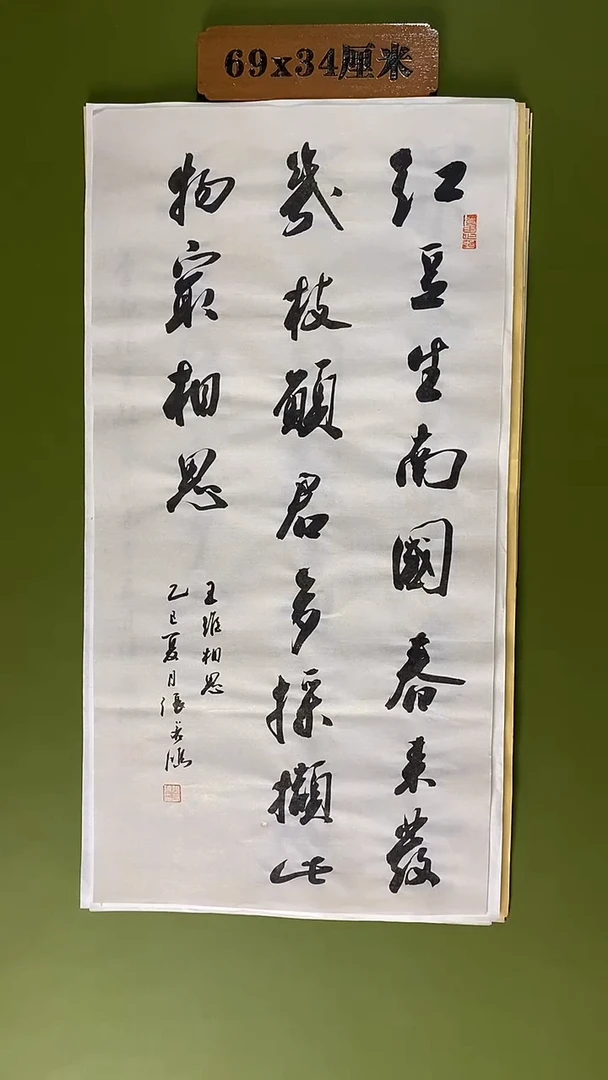 69x34厘米
红豆生南國春来發
幾枝願君多採擷此
物最相思
王維相思
乙巳夏月張